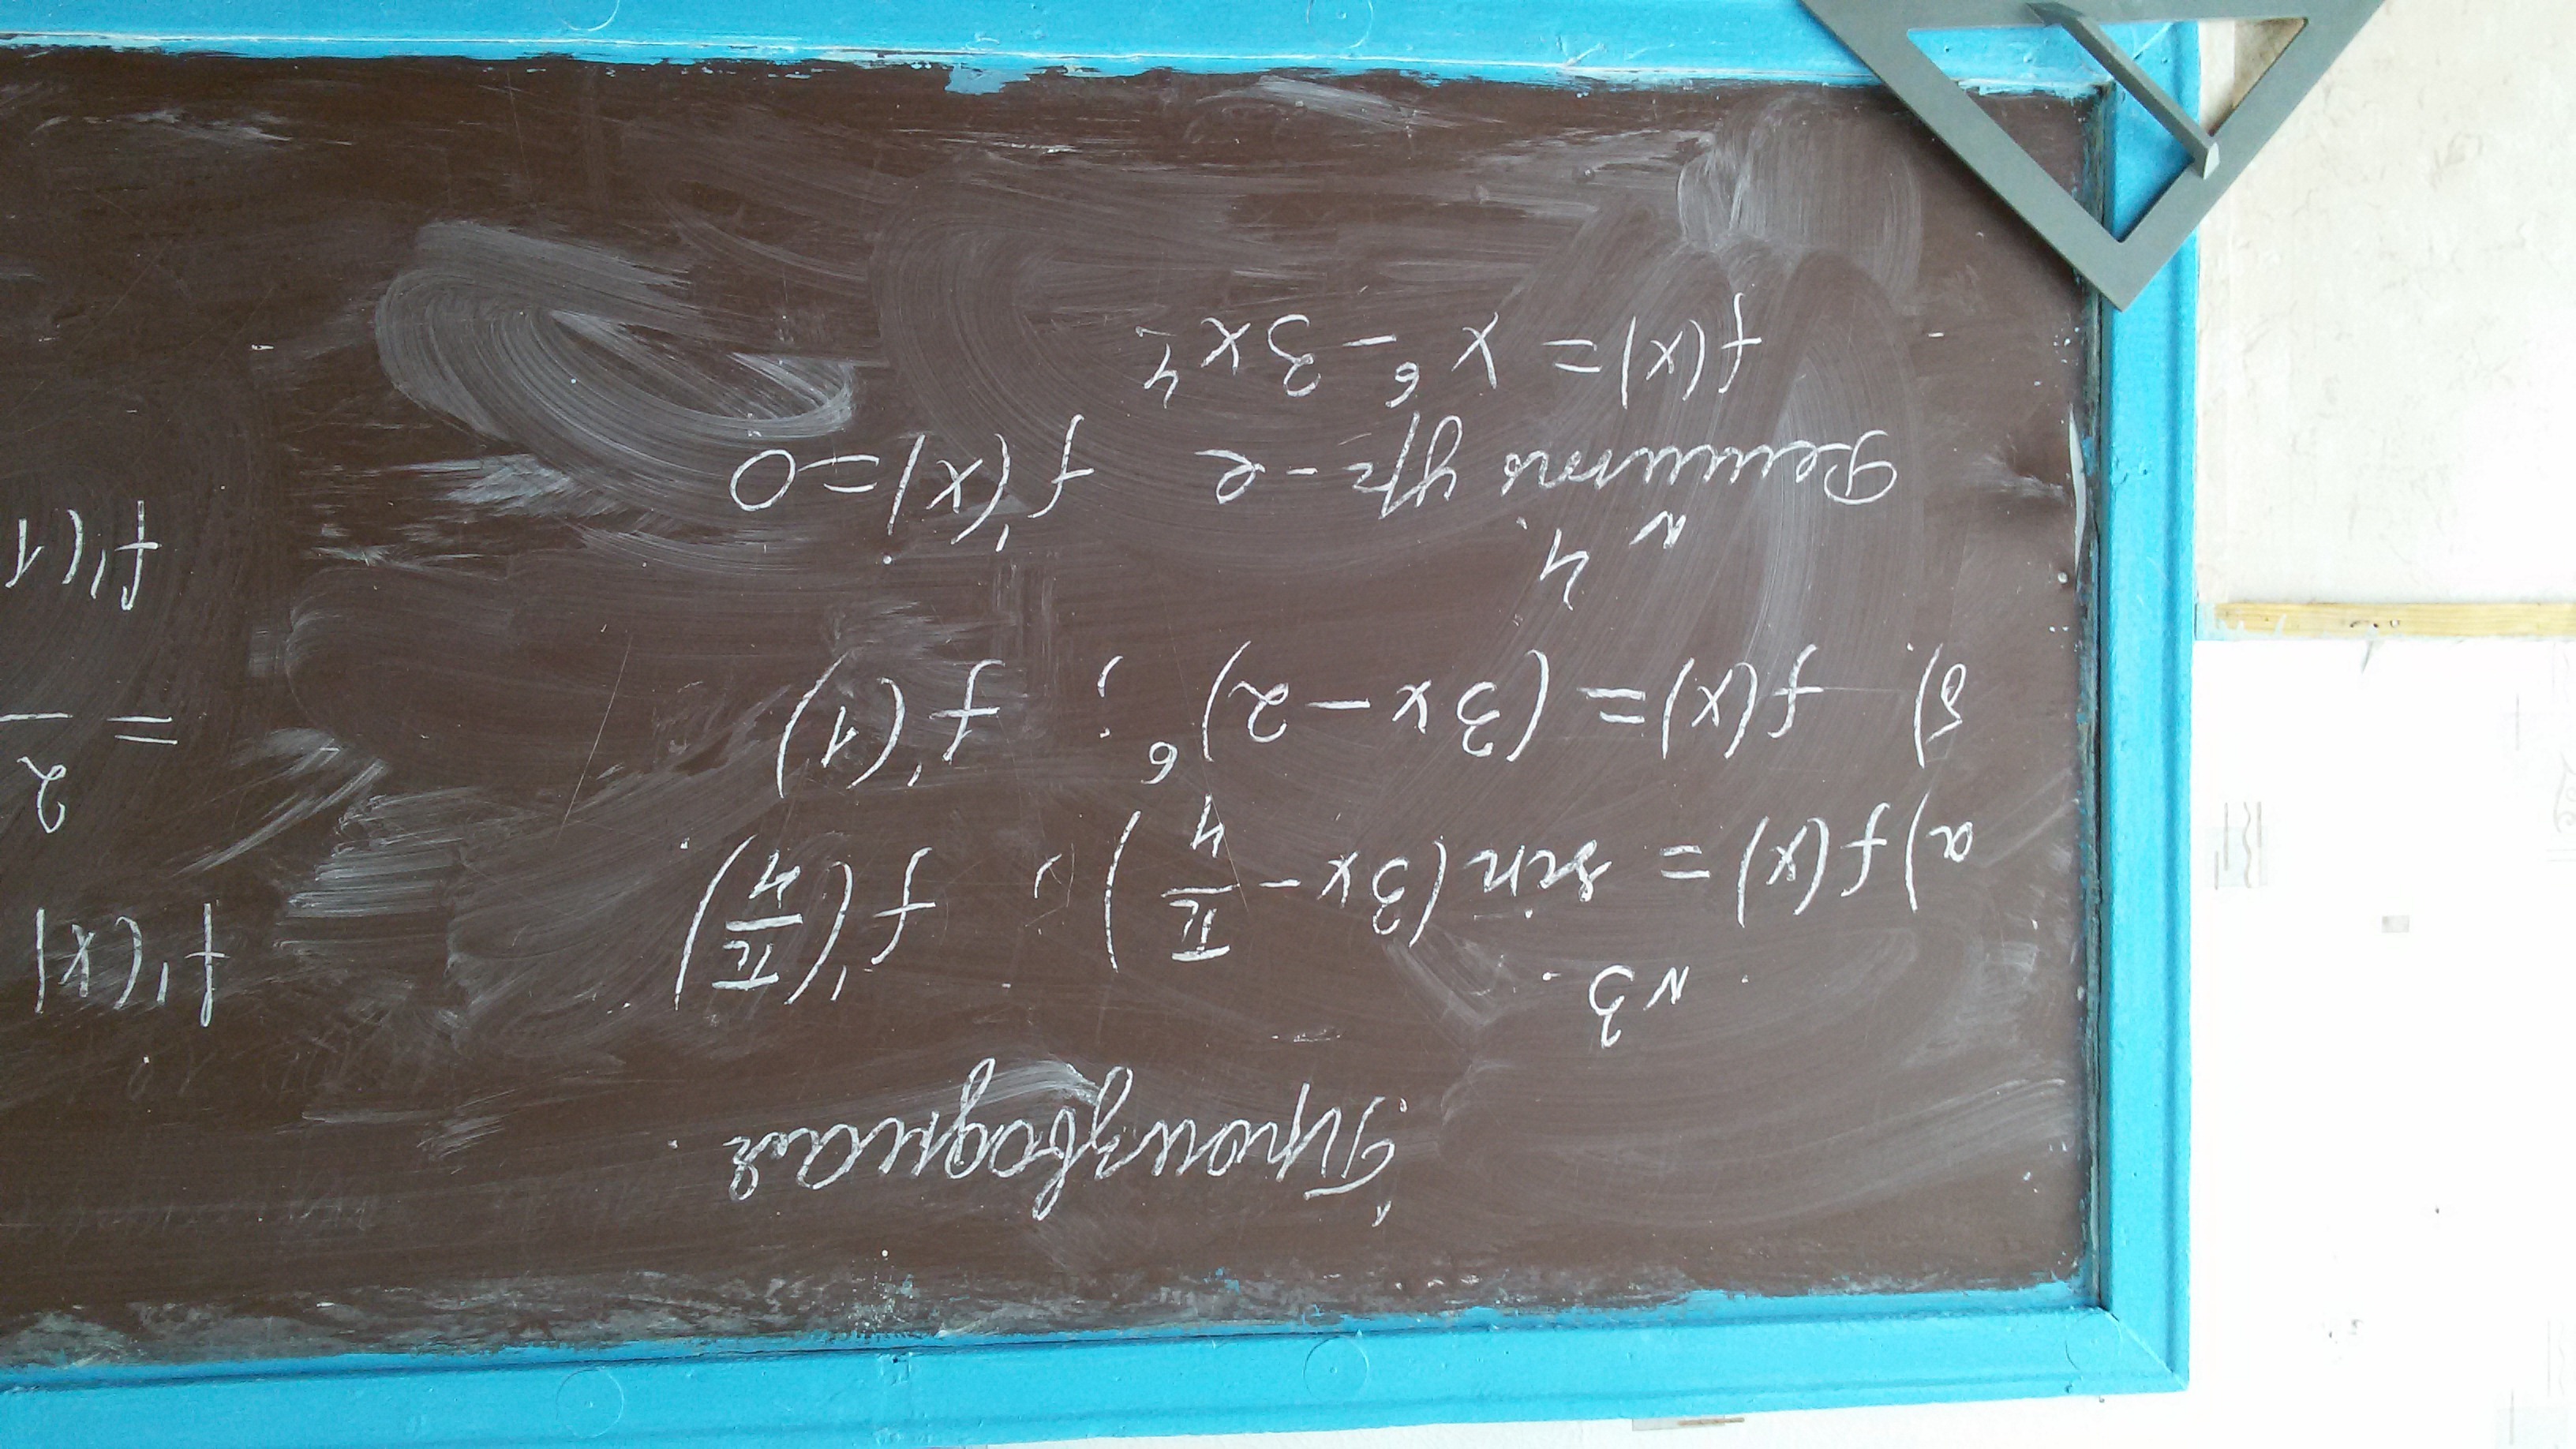 Производная
N3.
а) f(x) = sin(3x - π/4), f'(π/4).
б) f(x) = (3x - 2)⁶; f'(1)
N4
Решить ур-е f'(x) = 0
f(x) = x⁶ - 3x⁴
f'(x)
= 2
f'(1